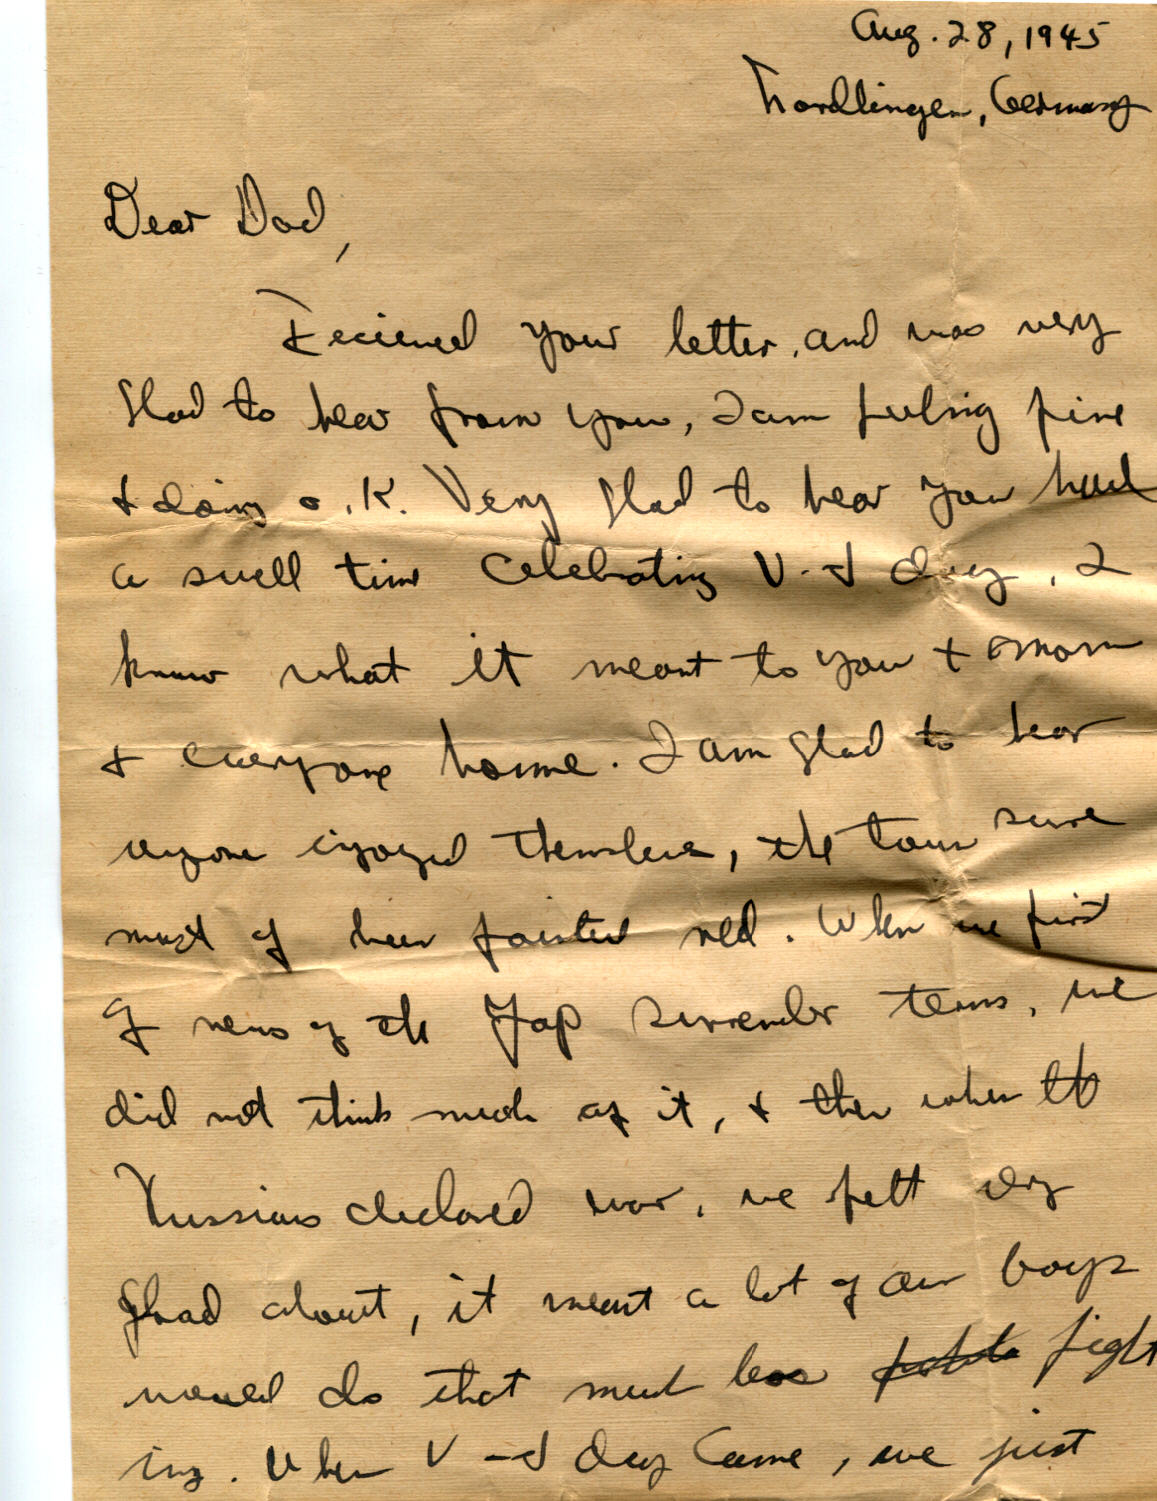 Aug. 28, 1945
Nordlingen, Germany
Dear Dad,
Recieved your letter, and was very
glad to hear from you, I am feeling fine
& doing O.K. Very glad to hear you had
a swell time celebrating V-J day, I
know what it meant to you & mom
& everyone home. I am glad to hear
enjoyed themselves, the town sure
must of been painted red. When we first
news of the Jap surrender terms, we
did not think much of it, & then when the
Russians declared war, we felt very
glad about, it meant a lot of our boys
would do that much less fight
ing. When V-J day came, we just